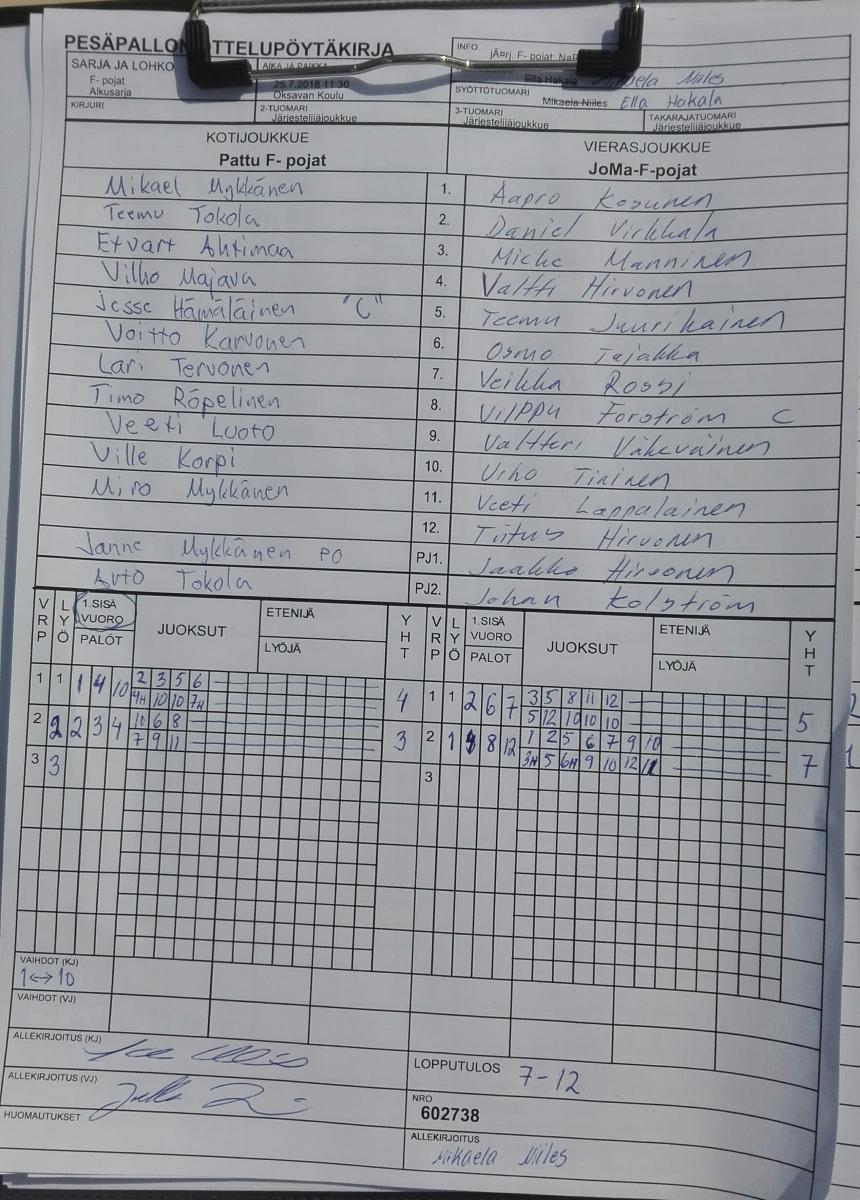 PESÄPALLON OTTELUPÖYTÄKIRJA
SARJA JA LOHKO
F- pojat
Alkusarja
AIKA JA PAIKKA
25.7.2018 11:30
Oksavan Koulu
INFO
jÄ¤rj. F- pojat:
Ella Hakala Mikaela Niiles
SYÖTTÖTUOMARI
Mikaela Niiles Ella Hakala
KIRJURI
2-TUOMARI
Järjestelijäjoukkue
3-TUOMARI
Järjestelijäjoukkue
TAKARAJATUOMARI
Järjestelijäjoukkue
KOTIJOUKKUE
Pattu F- pojat
VIERASJOUKKUE
JoMa-F-pojat
Mikael Mykkänen 1. Aapro Kosunen
Teemu Tokola 2. Daniel Virkkala
Etvart Ahtimaa 3. Micke Manninen
Vilho Majava 4. Valtti Hirvonen
Jesse Hämäläinen "C" 5. Teemu Juurikainen
Voitto Karvonen 6. Osmo Tajakka
Lari Tervonen 7. Veikka Rossi
Timo Röpelinen 8. Vilppu Forström C
Veeti Luoto 9. Valtteri Väkeväinen
Ville Korpi 10. Urho Tininen
Miro Mykkänen 11. Veeti Lappalainen
12. Tiitus Hirvonen
Janne Mykkänen PO PJ1. Jaakko Hirvonen
Arto Tokola PJ2. Johan Kolström
VRP LYÖ 1.SISÄ VUORO PALOT JUOKSUT ETENIJÄ LYÖJÄ YHT VRP LYÖ 1.SISÄ VUORO PALOT JUOKSUT ETENIJÄ LYÖJÄ YHT
1 1 1 4 10 2 3 5 6 4 1 1 2 6 7 3 5 8 11 12 5
4H 10 10 7H 5 12 10 10 10
2 2 2 3 4 10 6 8 3 2 1 8 12 1 2 5 6 7 9 10 7
7 9 11 3H 5 6H 9 10 12 11
3 3 3
VAIHDOT (KJ)
1↔10
VAIHDOT (VJ)
ALLEKIRJOITUS (KJ)
ALLEKIRJOITUS (VJ)
HUOMAUTUKSET
LOPPUTULOS 7-12
NRO
602738
ALLEKIRJOITUS
Mikaela Niiles